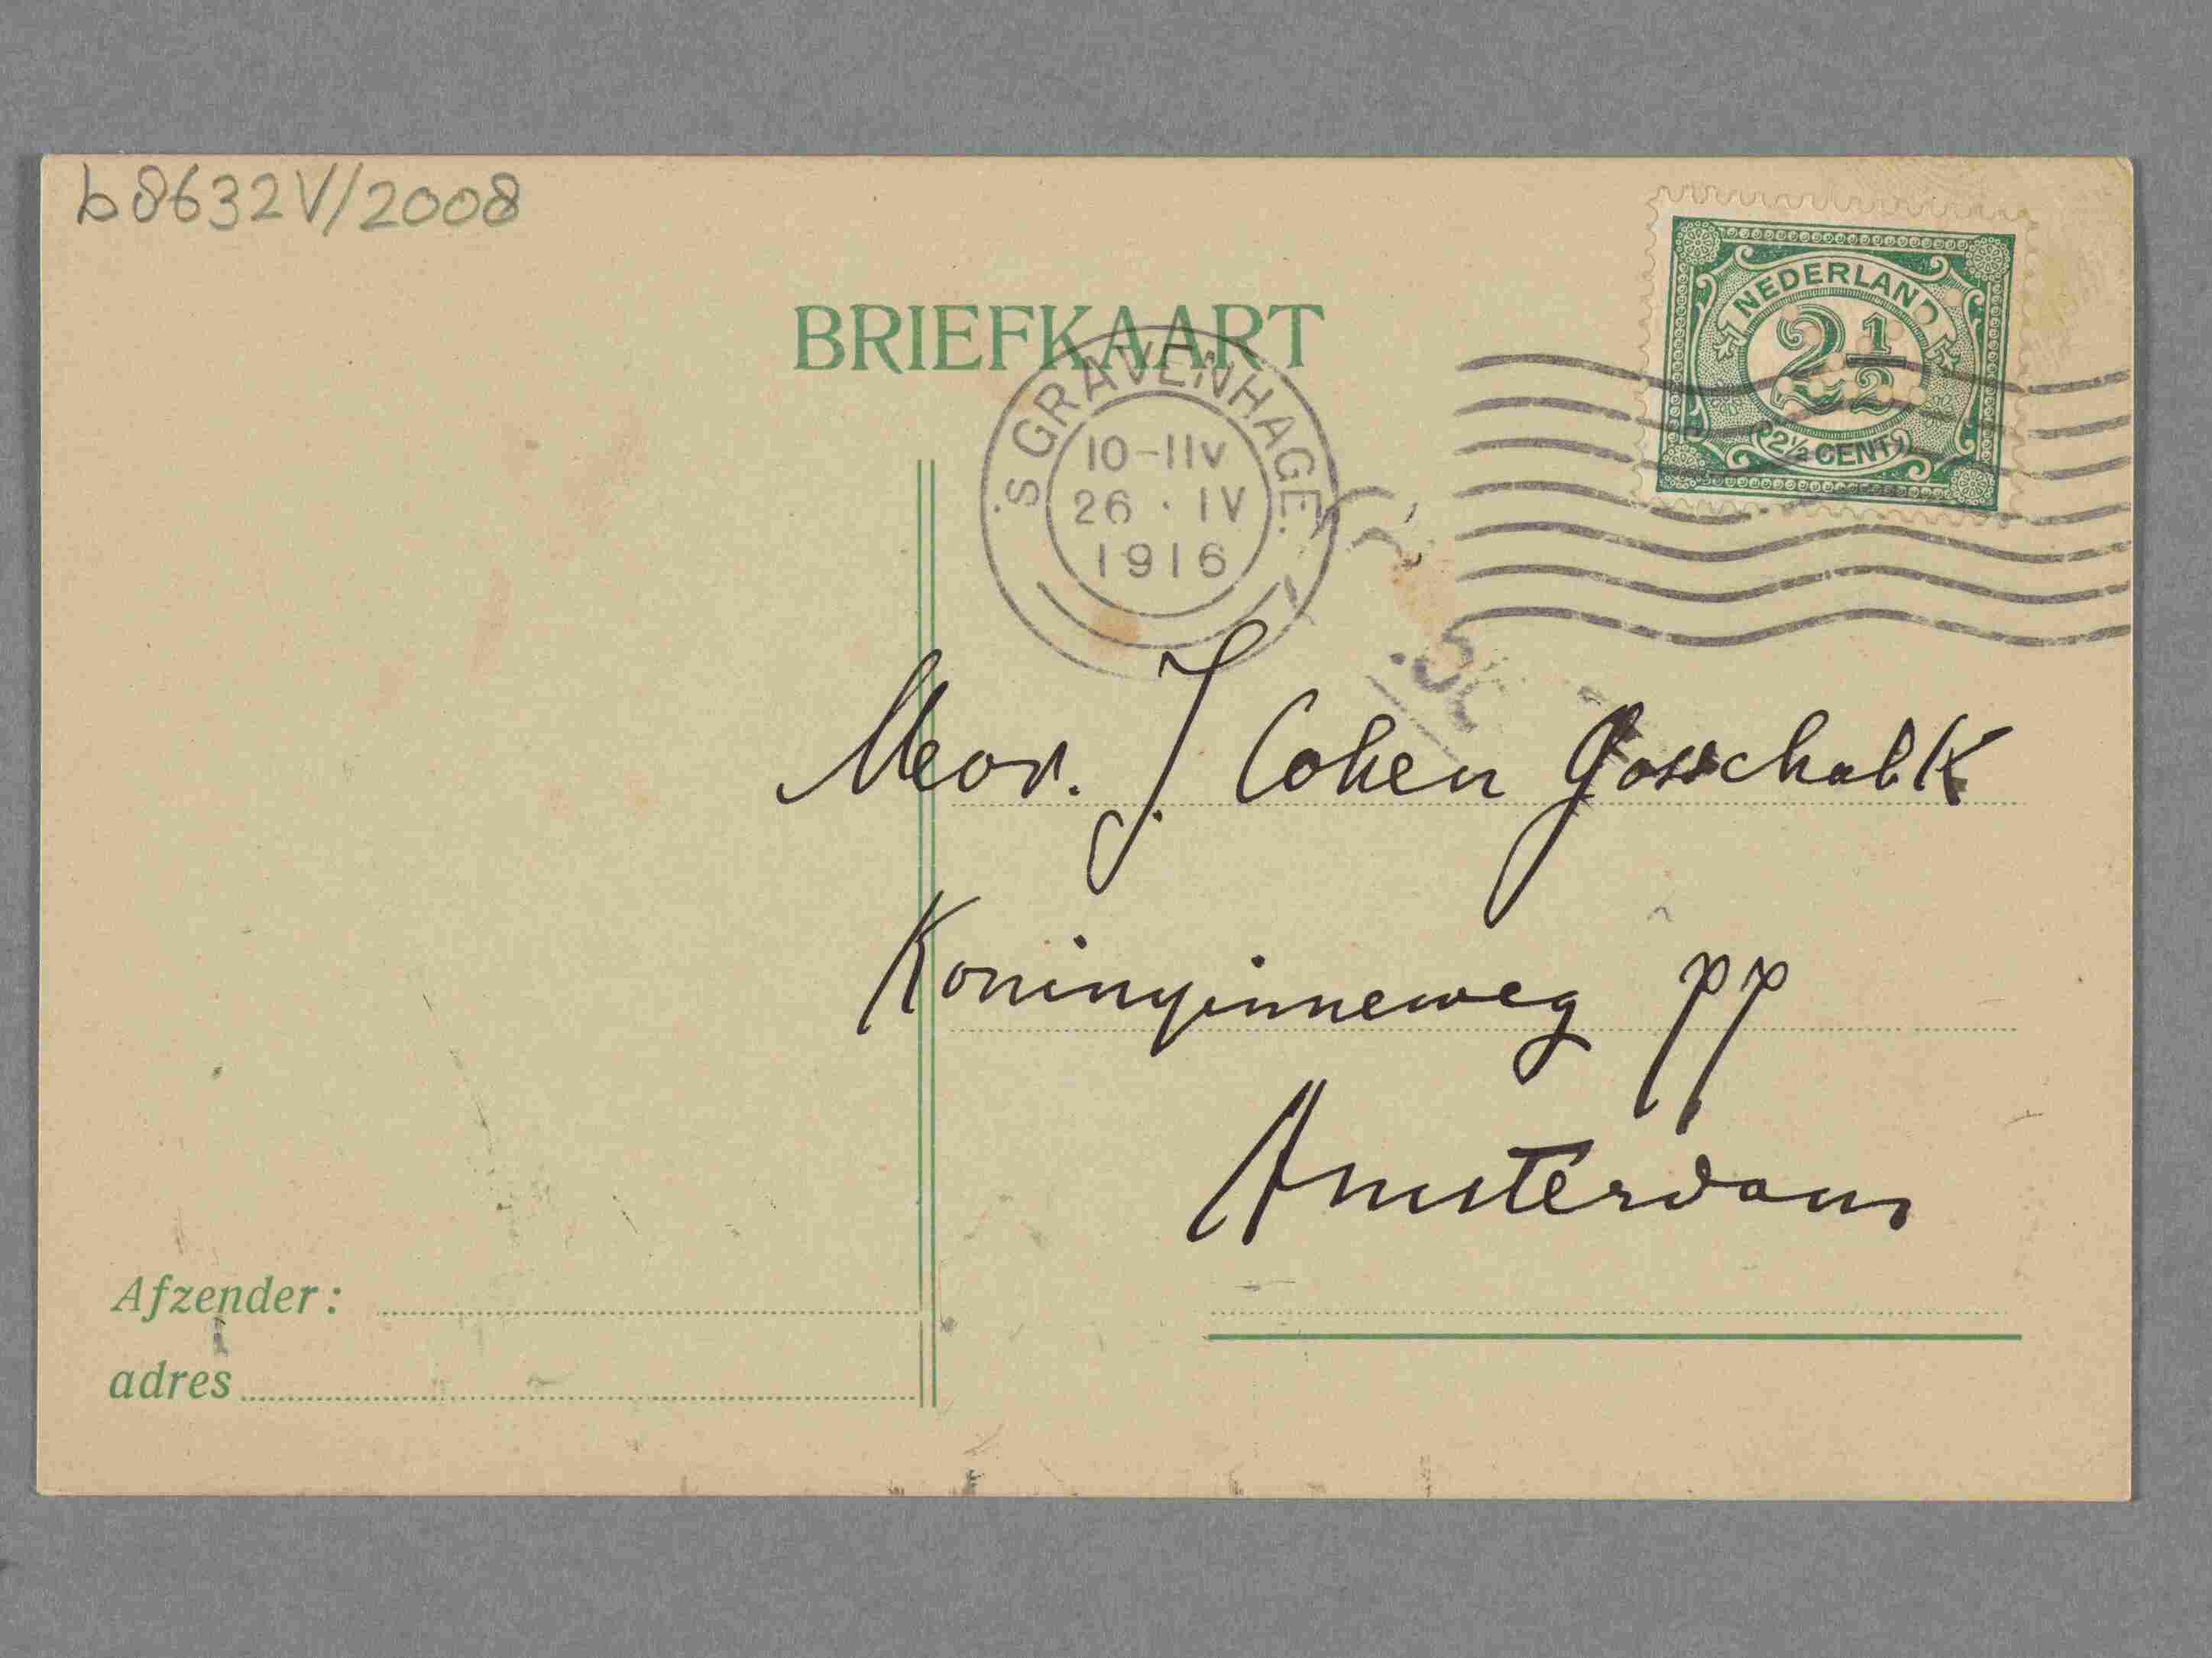 b8632V/2008
BRIEFKAART
NEDERLAND
2 1/2
2 1/2 CENT
'S GRAVENHAGE.
10-11V
26 · IV
1916
Mevr. J. Cohen Gosschalk
Koninginneweg 77
Amsterdam
Afzender:
adres